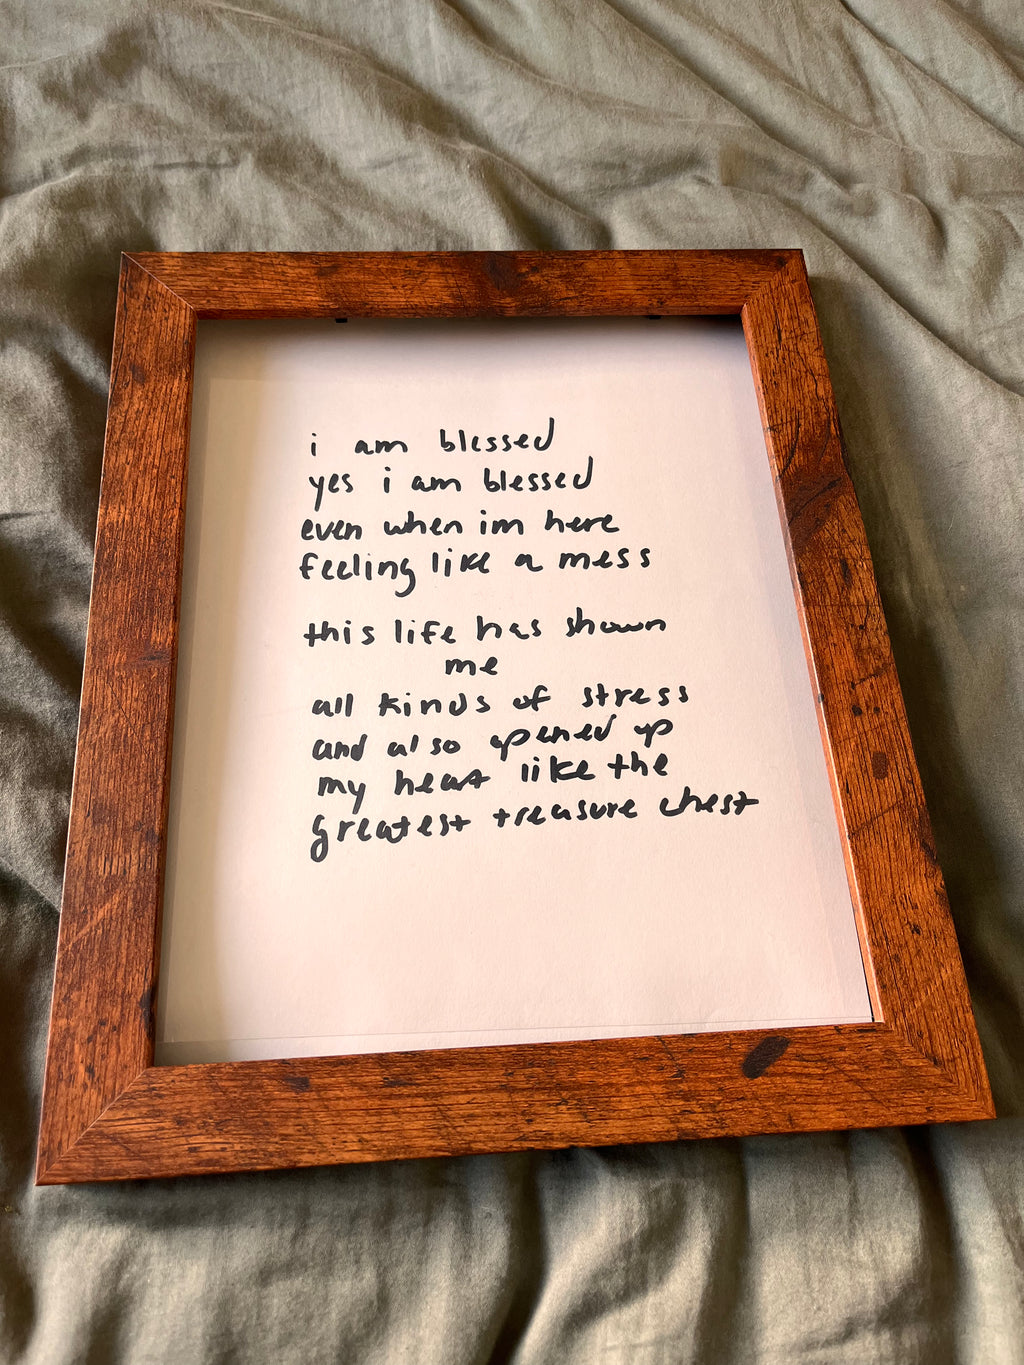 i am blessed
yes i am blessed
even when im here
feeling like a mess
this life has shown
me
all kinds of stress
and also opened up
my heart like the
greatest treasure chest